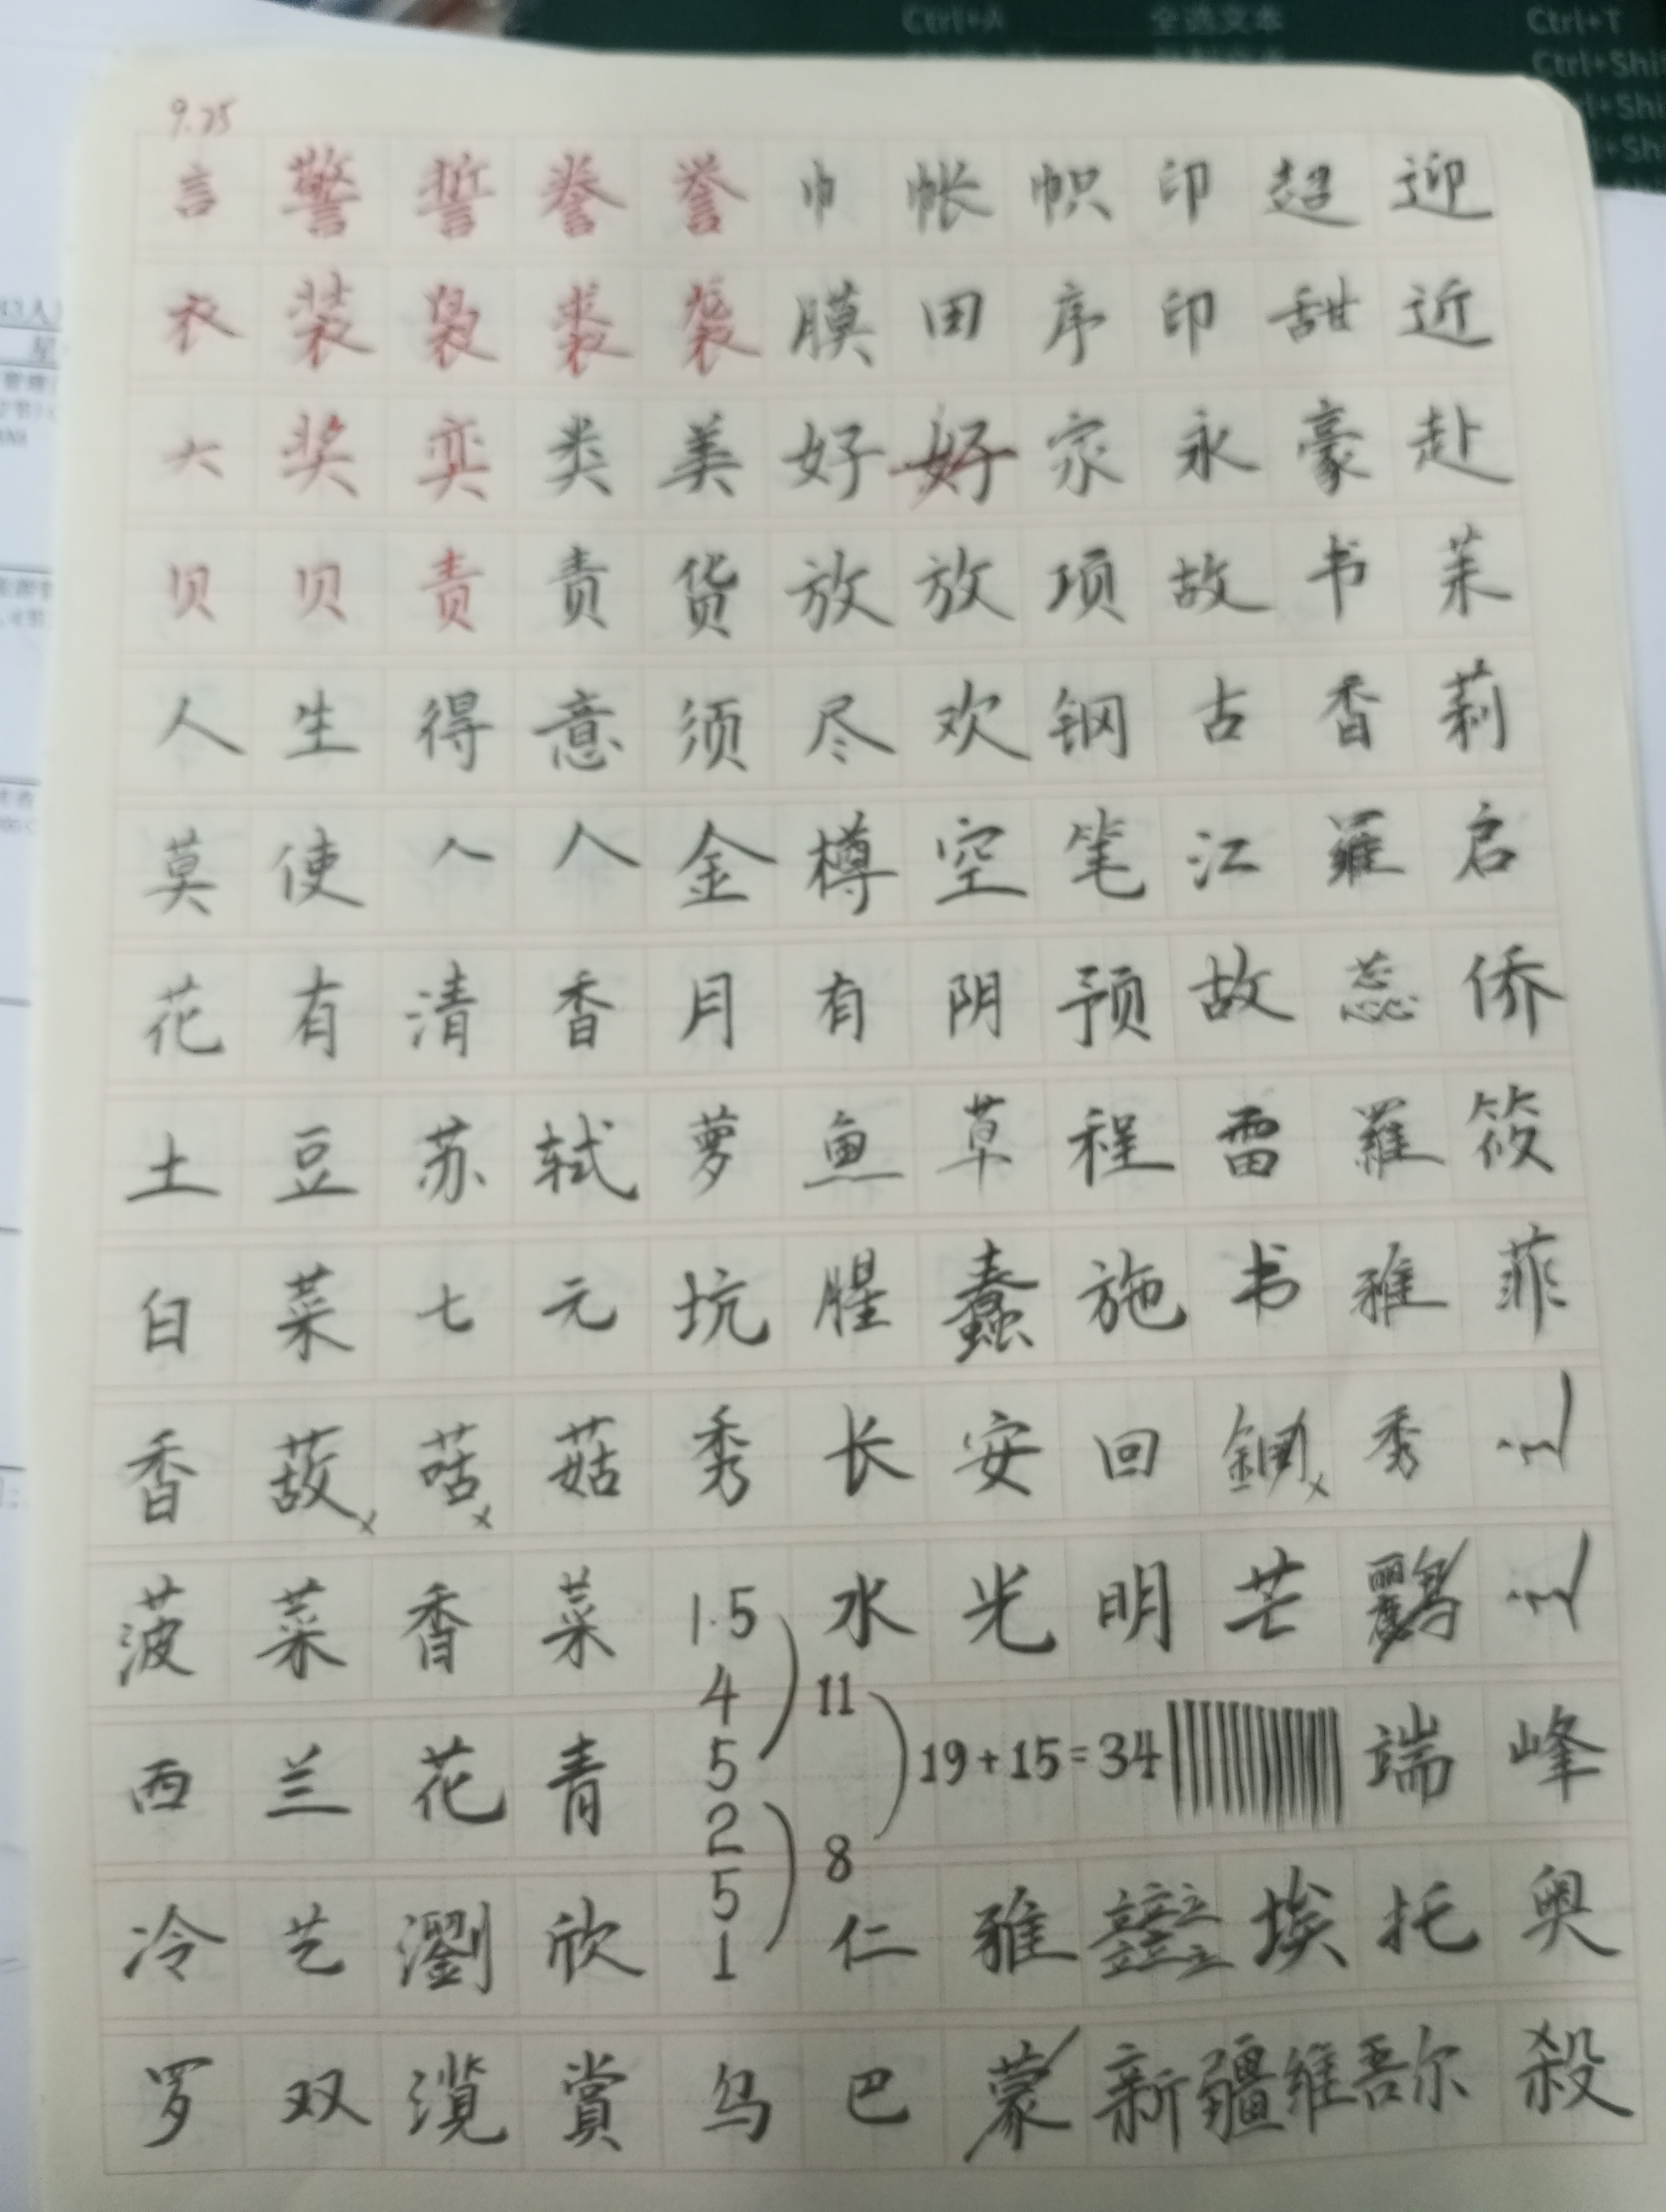 Ctrl+A 全选文本 Ctrl+T
9.25
言 警 誓 誊 誉 巾 帐 帜 印 超 迎
衣 装 袅 裘 袭 膜 田 序 印 甜 近
大 奖 奕 类 美 好 好 家 永 豪 赴
贝 贝 责 责 货 放 放 项 故 书 茉
人 生 得 意 须 尽 欢 钢 古 香 莉
莫 使 人 人 金 樽 空 笔 江 羅 启
花 有 清 香 月 有 阴 预 故 蕊 侨
土 豆 苏 轼 萝 鱼 草 程 雷 羅 筱
白 菜 七 元 坑 腥 蠢 施 书 雅 菲
香 菇 秀 长 安 回 秀
菠 菜 香 菜 1.5 水 光 明 芒
4 11
西 兰 花 青 5 19+15=34 端 峰
2 8
5
冷 艺 瀏 欣 1 仁 雅 埃 托 奥
罗 双 濱 賞 乌 巴 蒙 新疆维吾尔 殺